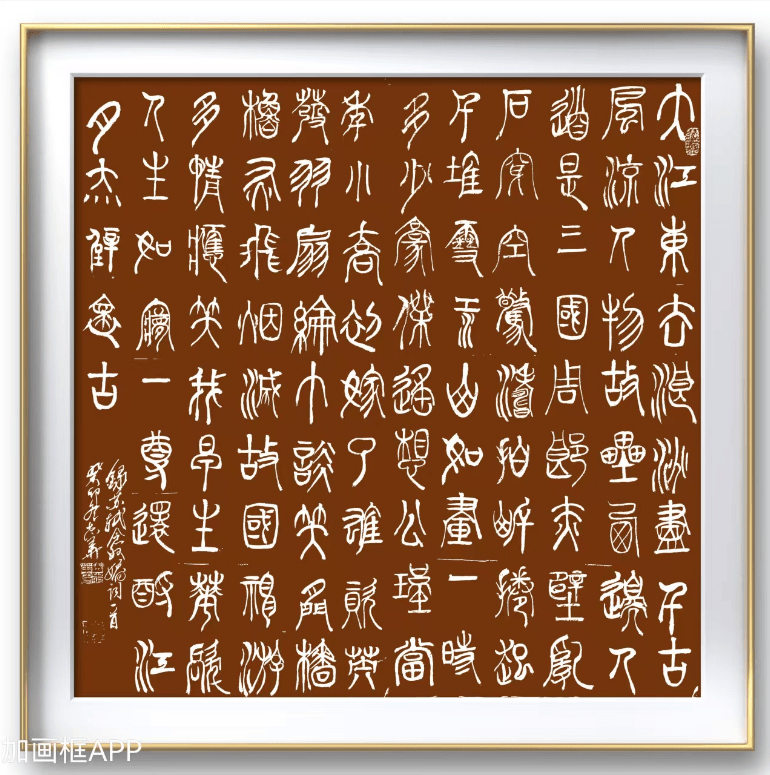 大江東去浪沙盡千古
風流人物故壘西邊人
道是三國周郎赤壁亂
石穿空驚濤拍岸捲起
千堆雪江山如畫一時
多少豪傑遙想公瑾當
年小喬初嫁了雄姿英
發羽扇綸巾談笑間檣
櫓灰飛烟滅故國神游
多情應笑我早生華髮
人生如夢一尊還酹江
月赤壁懷古
錄蘇軾念奴嬌詞一首
癸卯冬
加画框APP